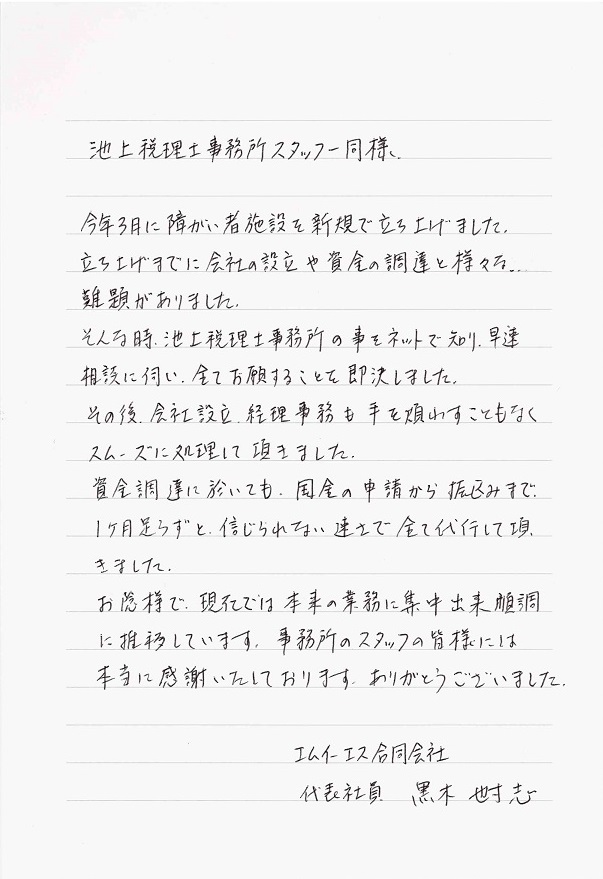 池上税理士事務所スタッフ一同様、
今年3月に障がい者施設を新規で立ち上げました。
立ち上げまでに会社の設立や資金の調達と様々な
難題がありました。
そんな時、池上税理士事務所の事をネットで知り、早速
相談に伺い、全てお願することを即決しました。
その後、会社設立、経理事務も手を煩わすこともなく
スムーズに処理して頂きました。
資金調達に於いても、国金の申請から振込みまで、
1ヶ月足らずと、信じられない速さで全て代行して頂
きました。
お陰様で、現在では本来の業務に集中出来順調
に推移しています。事務所のスタッフの皆様には
本当に感謝いたしております。ありがとうございました。
エムイーエス合同会社
代表社員 黒木